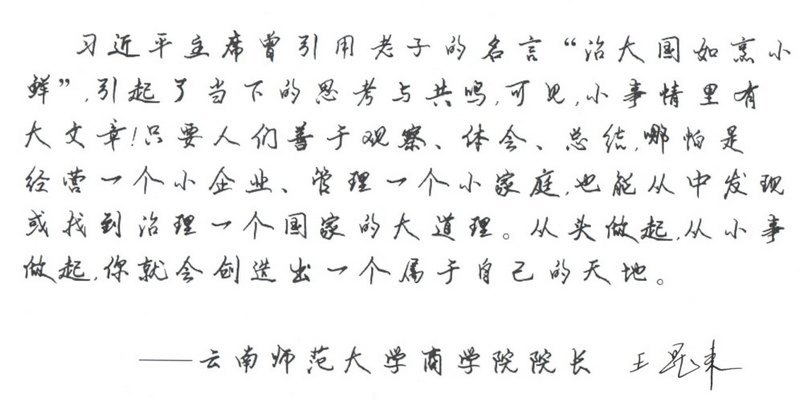 习近平主席曾引用老子的名言“治大国如烹小
鲜”,引起了当下的思考与共鸣,可见,小事情里有
大文章!只要人们善于观察、体会、总结,哪怕是
经营一个小企业、管理一个小家庭,也能从中发现
或找到治理一个国家的大道理。从头做起,从小事
做起,你就会创造出一个属于自己的天地。
——云南师范大学商学院院长 王昆来